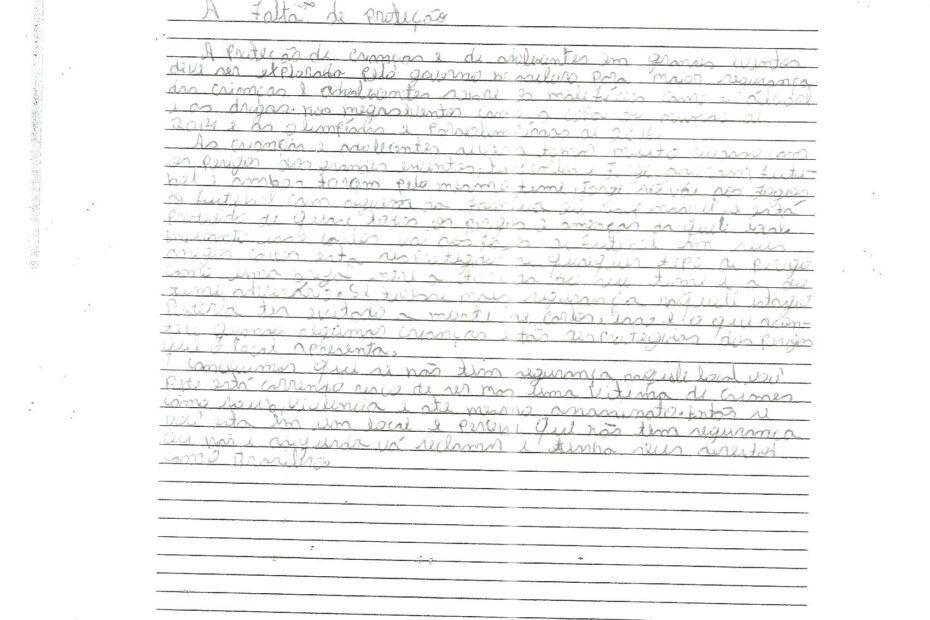 A Falta de proteção
A proteção de crianças e de adolecentes em grandes eventos
deve ser explorado pelo governo brasileiro para maior segurança
das crianças e adolecentes sobre os maleficios como o alcool
e as drogas nos megaeventos como a copa do mundo de
2014 e as olimpíadas e paraolimpíadas de 2016.
As crianças e adolecentes devem tomar muito cuidado com
os perigos dos grandes eventos. e se gostam fute-
bol e ambos torcem pelo mesmo time, José só vai nos jogos
de futebol com alguem da família ou and está
protegido de quase todos os perigos e ameaças da quele
carlos vai nos jogos de futebol sem seus
carlos esta de qualquer tipo de perigo
como uma briga entre a torcida do seu time e a do
time adversário. Se tivesse mais segurança naquele estágio
poderia ter evitado a morte de carlos, isso é o que acon-
teu quando algumas crianças estão desprotegidas dos perigos
que o local apresenta.
Concluimos que se não tem segurança naquele local você
este está correndo risco de ser mas uma vitima de crimes
como roubo, violencia e até mesmo assasinato. Então se
você esta em um local e percebe que não tem segurança
ou não é segurado vá reclamar e tenha seus direitos
como Brasileiro.